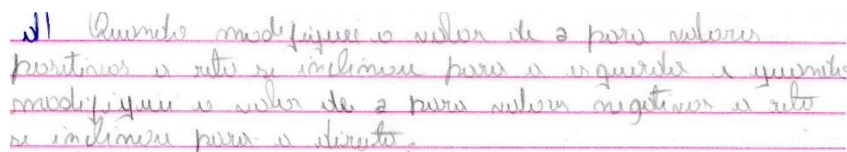 d) Quando modifiquei o valor de a para valores
positivos a reta se inclinou para a esquerda e quando
modifiquei o valor de a para valores negativos a reta
se inclinou para a direita.